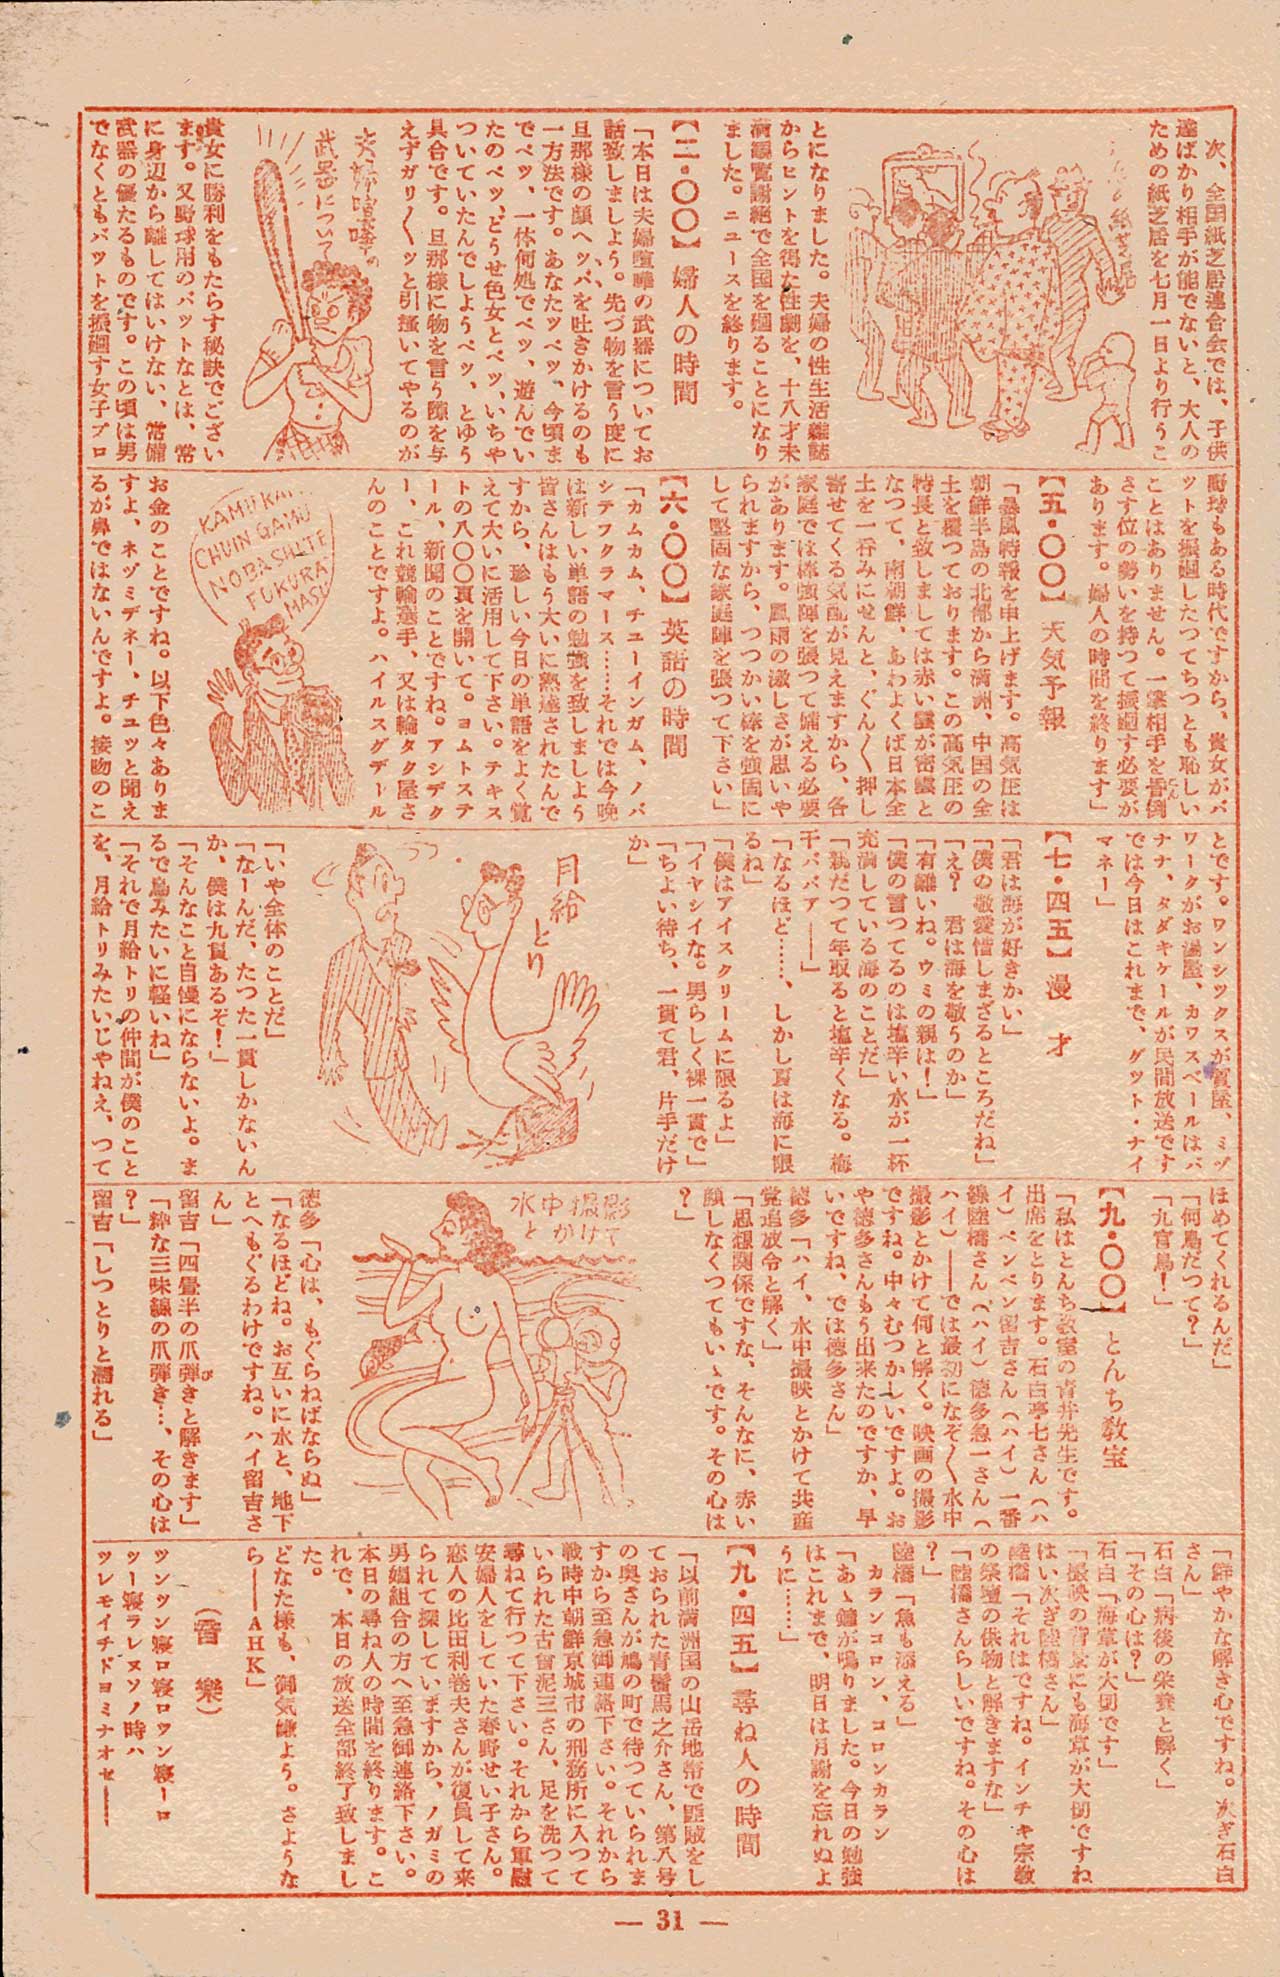 次、全国紙芝居連合会では、子供
達ばかり相手が能でないと、大人の
ための紙芝居を七月一日より行うこ
とになりました。夫婦の性生活雑誌
からヒントを得た性劇を、十八才未
満観覧謝絶で全国を廻ることになり
ました。ニュースを終ります。
【二・〇〇】婦人の時間
「本日は夫婦喧嘩の武器についてお
話致しましよう。先づ物を言う度に
旦那様の顔へツバを吐きかけるのも
一方法です。あなたツペツ、今頃ま
でペツ、一体何処でペツ、遊んでい
たのペツ、どうせ色女とペツ、いちや
ついていたんでしようペツ、とゆう
具合です。旦那様に物を言う隙を与
えずガリ〱ツと引搔いてやるのが
夫婦喧嘩の
武器について
貴女に勝利をもたらす秘訣でござい
ます。又野球用のバットなとは、常
に身辺から離してはいけない、常備
武器の優たるものです。この頃は男
でなくともバットを振廻す女子プロ
野球もある時代ですから、貴女がバ
ットを振廻したつてちつとも恥しい
ことはありません。一撃相手を昏倒
さす位の勢いを持つて振廻す必要が
あります。婦人の時間を終ります」
【五・〇〇】天気予報
「暴風特報を申上げます。高気圧は
朝鮮半島の北部から満洲、中国の全
土を覆つております。この高気圧の
特長と致しましては赤い雲が密雲と
なつて、南朝鮮、あわよくば日本全
土を一呑みにせんと、ぐん〱押し
寄せてくる気配が見えますから、各
家庭では棒強陣を張つて備える必要
があります。風雨の激しさが思いや
られますから、つつかい棒を強固に
して堅固な家庭陣を張つて下さい」
【六・〇〇】英語の時間
「カムカム、チューインガム、ノバ
シテフクラマース……それでは今晩
は新しい単語の勉強を致しましよう
皆さんはもう大いに熟達されたんで
すから、珍しい今日の単語をよく覚
えて大いに活用して下さい。テキス
トの八〇〇頁を開いて。ヨムトステ
ール、新聞のことですね。アシデク
ー、これ競輪選手、又は輪タク屋さ
んのことですよ。ハイルスグデール
KAMUKAMU
CHUIN GAMU
NOBASHITE
FUKURA
MASU
お金のことですね。以下色々ありま
すよ、ネヅミデネー、チュッと聞え
るが鼻ではないんですよ。接吻のこ
とです。ワンシックスが質屋、ミヅ
ワークがお湯屋、カワスベールはバ
ナナ、タダキケールが民間放送です
では今日はこれまで、グット・ナイ
マネー」
【七・四五】漫才
「君は海が好きかい」
「僕の敬愛惜しまざるところだね」
「え?　君は海を敬うのか」
「有難いね。ウミの親は!」
「僕の言つてるのは塩辛い水が一杯
充満している海のことだ」
「親だつて年取ると塩辛くなる。梅
干ババア――」
「なるほど……、しかし夏は海に限
るね」
「僕はアイスクリームに限るよ」
「イヤシイな。男らしく裸一貫で」
「ちよい待ち、一貫て君、片手だけ
か」
月給とり
「いや全体のことだ」
「なーんだ、たつた一貫しかないん
か、僕は九貫あるぞ!」
「そんなこと自慢にならないよ。ま
るで鳥みたいに軽いね」
「それで月給トリの仲間が僕のこと
を、月給トリみたいじやねえ、つて
ほめてくれるんだ」
「何鳥だつて?」
「九官鳥!」
【九・〇〇】とんち教室
「私はとんち教室の青井先生です。
出席をとります。石白亭七さん(ハ
イ)ペンペン留吉さん(ハイ)一番
線陸橋さん(ハイ)徳多急一さん(
ハイ)――では最初になぞ〱水中
撮影とかけて何と解く。映画の撮影
ですね。中々むつかしいですよ。お
や徳多さんもう出来たのですか、早
いですね、では徳多さん」
徳多「ハイ、水中撮映とかけて共産
党追放令と解く」
「思想関係ですな、そんなに、赤い
顔しなくつてもいゝです。その心は
?」
水中撮影
とかけて
徳多「心は、もぐらねばならぬ」
「なるほどね。お互いに水と、地下
とへもぐるわけですね。ハイ留吉さ
ん」
留吉「四畳半の爪弾きと解きます」
「粋な三味線の爪弾き…、その心は
?」
留吉「しつとりと濡れる」
「鮮やかな解き心ですね。次ぎ石白
さん」
石白「病後の栄養と解く」
「その心は?」
石白「海草が大切です」
「撮映の背景にも海草が大切ですね
はい次ぎ陸橋さん」
陸橋「それはですね。インチキ宗教
の祭壇の供物と解きますな」
「陸橋さんらしいですね。その心は
?」
陸橋「魚も添える」
カランコロン、コロンカラン
「あゝ鐘が鳴りました。今日の勉強
はこれまで、明日は月謝を忘れぬよ
うに……」
【九・四五】尋ね人の時間
「以前満洲国の山岳地帯で匪賊をし
ておられた青髯馬之介さん、第八号
の奥さんが鳩の町で待つていられま
すから至急御連絡下さい。それから
戦時中朝鮮京城市の刑務所に入つて
いられた古留泥三さん、足を洗つて
尋ねて行つて下さい。それから軍慰
安婦人をしていた春野せい子さん。
恋人の比田利巻夫さんが復員して来
られて探していますから、ノガミの
男娼組合の方へ至急御連絡下さい。
本日の尋ね人の時間を終ります。こ
れで、本日の放送全部終了致しまし
た。
どなた様も、御気嫌よう。さような
ら――AHK」
(音楽)
ツンツン寝ロ寝ロワン寝ーロ
ツー寝ラレヌソノ時ハ
ツレモイチドヨミナオセ――
― 31 ―